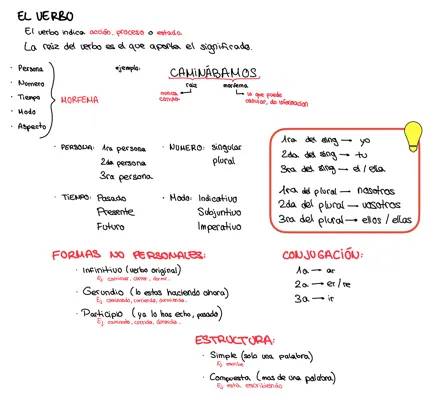 EL VERBO
El verbo indica acción, proceso o estado.
La raiz del verbo es el que aporta el significado.
· Persona
· Numero
· Tiempo
· Modo
· Aspecto
MORFEMA
ejemplo:
CAMINÁBAMOS
raiz morfema
nunca cambia
lo que puede cambiar, da información
· PERSONA: 1ra persona
2da persona
3ra persona
· NUMERO: singular
plural
· TIEMPO: Pasado
Presente
Futuro
· Modo: Indicativo
Subjuntivo
Imperativo
1ra del sing → yo
2da del sing → tu
3ra del sing → el / ella
1ra del plural → nosotros
2da del plural → vosotros
3ra del plural → ellos / ellas
FORMAS NO PERSONALES:
· Infinitivo (verbo original)
Ej. caminar, correr, dormir.
· Gerundio (lo estas haciendo ahora)
Ej. caminando, corriendo, durmiendo.
· Participio (ya lo has echo, pasado)
Ej. caminado, corrido, dormido.
CONJUGACIÓN:
1a → ar
2a → er / re
3a → ir
ESTRUCTURA:
· Simple (solo una palabra)
Ej.
· Compuesta (mas de una palabra)
Ej. esta escribiendo